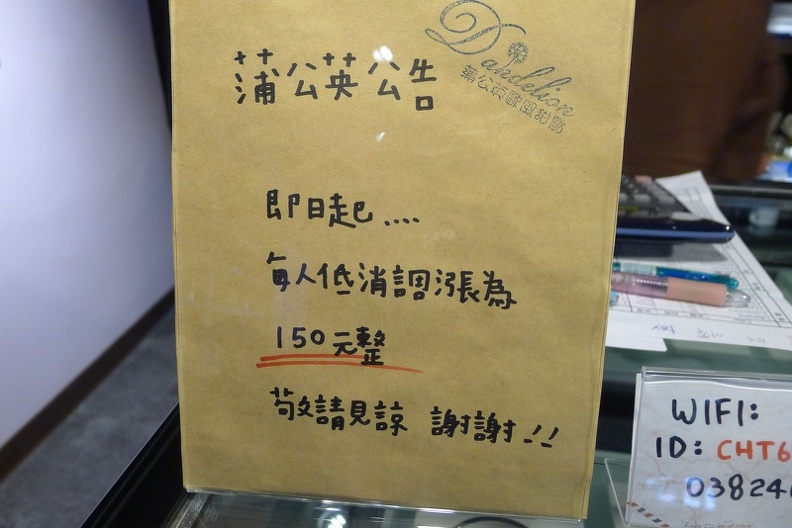 Dandelion
蒲公英歐風甜點
蒲公英公告
即日起....
每人低消調漲為
150元整
敬請見諒 謝謝!!
WIFI:
ID: CHT6
038246